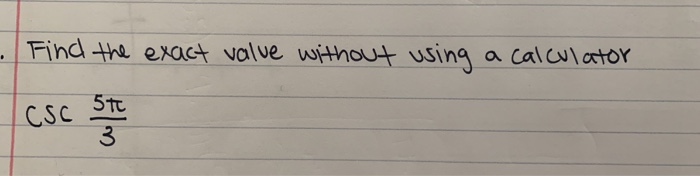 . Find the exact value without using a calculator
csc 5π/3